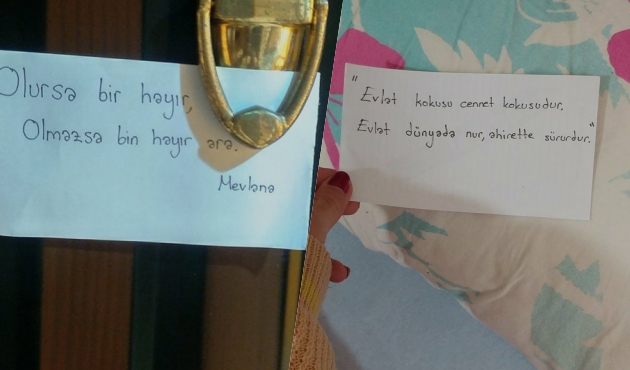 Olursa bir hayır,
Olmazsa bin hayır ara.
Mevlana
"Evlat kokusu cennet kokusudur.
Evlat dünyada nur, ahirette sürurdur."